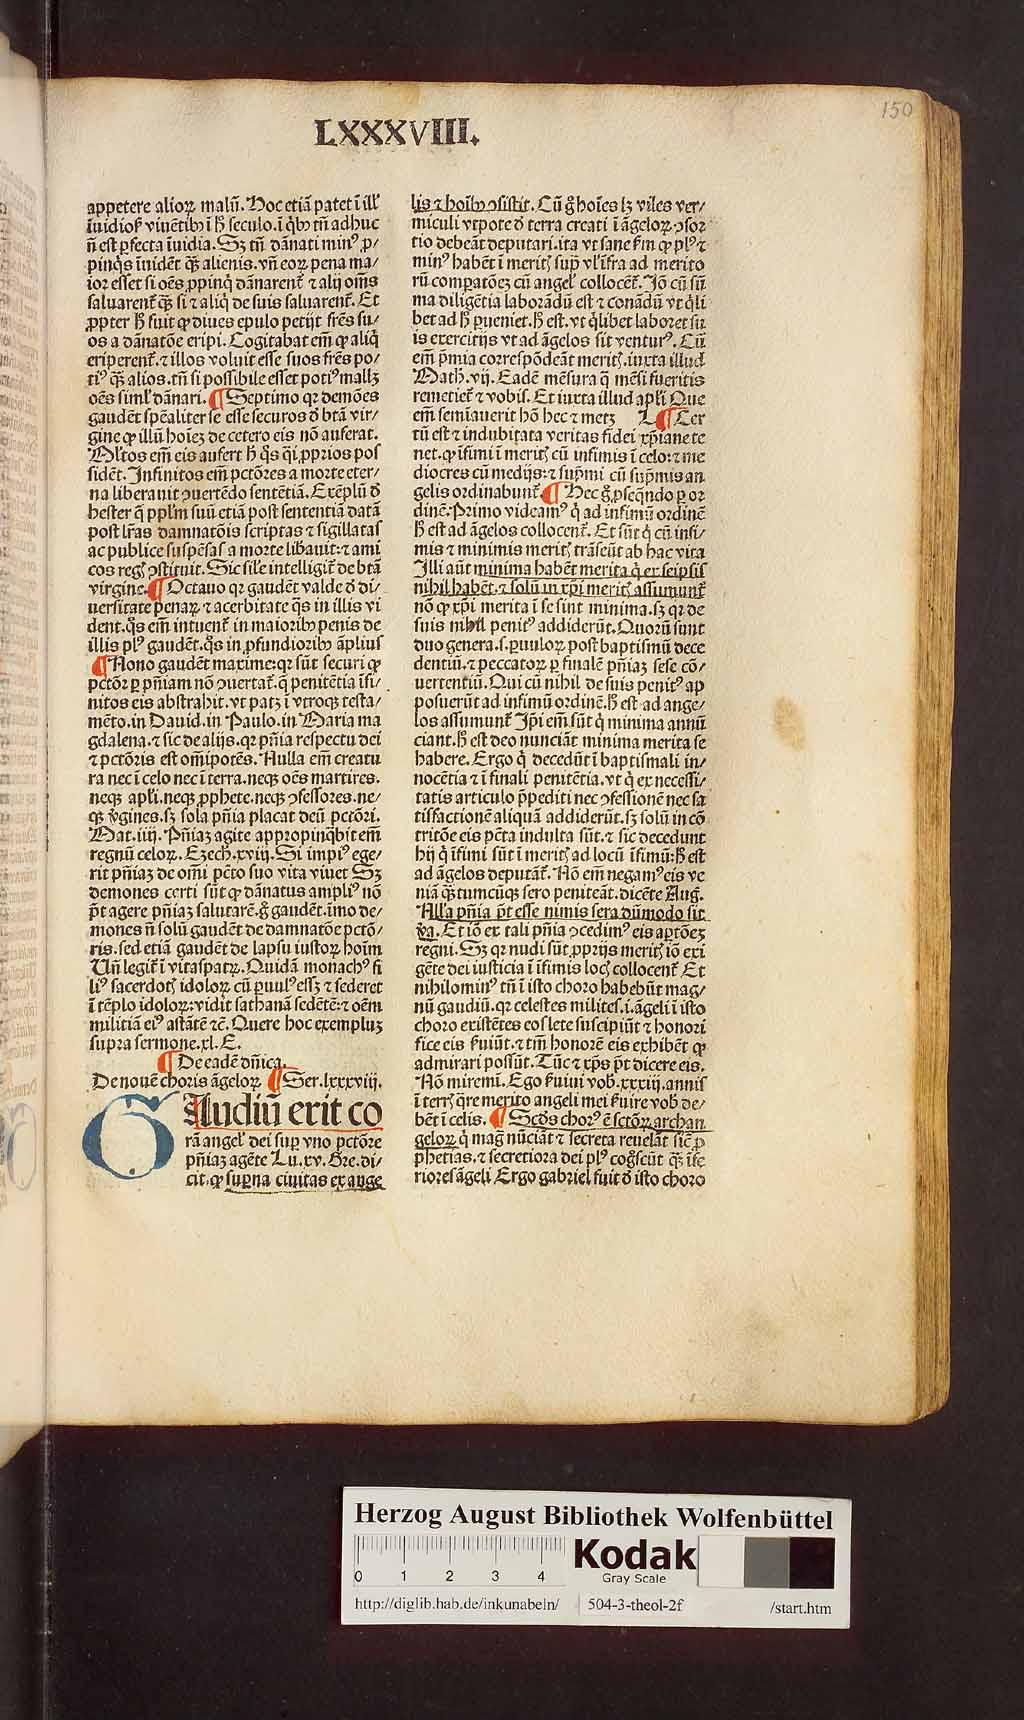 150
LXXXVIII.
appetere alioꝝ malū. Hoc etiā patet ī ill'
īuidiosꝭ viuētibꝰ ī hͦ seculo. ī qͥbꝰ tn̄ adhuc
nō est ꝑfecta īuidia. Sꝫ tn̄ dānati minꝰ ꝓ/
pinqͥs īuidēt qͣꝫ alienis. vn̄ eoꝝ pena ma/
ior esset si oēs ꝓpinqͥ dānarent᷑ ⁊ alij om̄s
saluarent᷑ qͣꝫ si ⁊ aliqͥ de suis saluarent᷑. Et
ꝓpter hͦ fuit ꝙ diues epulo petijt frēs su/
os a dānatōe eripi. Cogitabat em̄ ꝙ aliqͥ
eriperent᷑. ⁊ illos voluit esse suos frēs po/
tiꝰ qͣꝫ alios. tn̄ si possibile esset potiꝰ mallꝫ
oēs siml' dānari. ¶ Septimo qꝛ demōes
gaudēt spēaliter se esse securos đ btā vir/
gine ꝙ illū hoīeꝫ de cetero eis nō auferat.
Ml'tos em̄ eis aufert hͦ qͦs qͥ ꝓprios pos
sidēt. Infinitos em̄ pctōres a morte eter/
na liberauit ꝯuertēdo sentētiā. Exēplū đ
hester q̄ pplm̄ suū etiā post sententiā datā
post lr̄as damnatōis scriptas ⁊ sigillatas
ac publice suspēsas a morte libauit: ⁊ ami
cos regꝭ ꝯstituit. Sic sil'e intelligit᷑ de btā
virgine. ¶ Octauo qꝛ gaudēt valde đ di/
uersitate penaꝝ ⁊ acerbitate qͣs in illis vi
dent. qͦs em̄ intuent᷑ in maioribꝰ penis de
illis plꝰ gaudēt. qͦs in ꝓfundioribꝰ āplius
¶ Nono gaudēt maxime: qꝛ sūt securi ꝙ
pctōꝝ ꝑ pn̄iam nō ꝯuertat᷑. q̄ penitētia īfi/
nitos eis abstrahit. vt patꝫ ī vtroqꝫ testa/
mēto. in Dauid. in Paulo. in Maria ma
gdalena. ⁊ sic de alijs. qꝛ pn̄ia respectu dei
⁊ pctōris est om̄ipotēs. Nulla em̄ creatu
ra nec ī celo nec ī terra. neqꝫ oēs martires.
neqꝫ apl'i. neqꝫ ꝓphete. neqꝫ ꝯfessores. ne/
qꝫ v̓gines. sꝫ sola pn̄ia placat deū pctōri.
Mat. iiij. Pn̄iaꝫ agite appropinqͣbit em̄
regnū celoꝝ. Ezech. xviij. Si impiꝰ ege/
rit pn̄iaꝫ de om̄i pctō suo vita viuet Sꝫ
demones certi sūt ꝙ dānatus ampliꝰ nō
pōt agere pn̄iaꝫ salutarē. gͦ gaudēt. īmo de/
mones nō solū gaudēt de damnatōe pctō/
ris. sed etiā gaudēt de lapsu iustoꝝ hoīm
Un̄ legit᷑ ī vitaspatꝝ. Quidā monachꝰ fi
liꝰ sacerdotꝭ idoloꝝ cū ꝑuulꝰ essꝫ ⁊ sederet
ī tēplo idoloꝝ: vidit sathanā sedētē: ⁊ oēm
militiā eiꝰ astātē ⁊c̄. Quere hoc exempluꝫ
supra sermone. xl. E.
¶ De eadē dn̄ica.
De nouē choris āgeloꝝ ¶ Ser. lxxxviii.
GAudiū erit co
rā angel' dei sup vno pctōre
pn̄iaꝫ agēte Lu. xv. Gre. di/
cit. ꝙ suꝑna ciuitas ex ange
lis ⁊ hoībꝰ ꝯsistit. Cū gͦ hoīes lꝫ viles ver/
miculi vtpote đ terra creati ī āgeloꝝ ꝯsor
tio debeāt deputari. ita vt sane ẜm ꝙ plꝰ ⁊
minꝰ habēt ī meritꝭ sup̄ vl' īfra ad merito
rū compatōeꝫ cū angel' collocēt᷑. Iō cū sū
ma diligētia laborādū est ⁊ conādū vt qͥli
bet ad hͦ ꝑueniet. hͦ est. vt qͥlibet laboret su
is exercitijs vt ad āgelos sit venturꝰ. Cū
em̄ p̄mia correspōdeāt meritꝭ. iuxta illud
Math. vij. Eadē mēsura q̄ mēsi fueritis
remetiet᷑ ⁊ vobis. Et iuxta illud apl'i Que
em̄ semīauerit hō hec ⁊ metꝫ L ¶ Cer
tū est ⁊ indubitata veritas fidei xp̄iane te
net. ꝙ īfimi ī meritꝭ cū infimis ī celo: ⁊ me
diocres cū medijs: ⁊ sup̄mi cū sup̄mis an
gelis ordinabunt᷑ ¶ Hec gͦ ꝓseqͥndo ꝑ or
dinē. Primo videamꝰ qͥ ad infimū ordinē
hͦ est ad āgelos collocent᷑. Et sūt qͥ cū infi/
mis ⁊ minimis meritꝭ trāseūt ab hac vita
Illi aūt minima habēt merita qͥ ex seipsis
nihil habēt. ⁊ solū in xp̄i meritꝭ assumunt᷑
nō ꝙ xp̄i merita ī se sint minima. sꝫ qꝛ de
suis nihil penitꝰ addiderūt. Quorū sunt
duo genera. s. ꝑuuloꝝ post baptismū dece
dentiū. ⁊ peccatoꝝ ꝑ finalē pn̄iaꝫ sese cō/
uertentiū. Qui cū nihil de suis penitꝰ ap
posuerūt ad infimū ordinē. hͦ est ad ange/
los assumunt᷑ Ip̄i em̄ sūt qͥ minima annū
ciant. hͦ est deo nunciāt minima merita se
habere. Ergo qͥ decedūt ī baptismali in/
nocētia ⁊ ī finali penitētia. vt qͥ ex necessi/
tatis articulo p̄pediti nec ꝯfessionē nec sa
tisfactionē aliquā addiderūt. sꝫ solū in cō
tritōe eis pctā indulta sūt. ⁊ sic decedunt
hij qͥ īfimi sūt ī meritꝭ ad locū īfimū: hͦ est
ad āgelos deputāt᷑. Nō em̄ negamꝰ eis ve
niā qͣꝫtumcūqꝫ sero peniteāt. dicēte Aug.
Nlla pn̄ia pōt esse nimis sera dūmodo sit
v̓a. Et iō ex tali pn̄ia ꝯcedimꝰ eis aptōeꝫ
regni. Sꝫ qꝛ nudi sūt ꝓprijs meritꝭ iō exi
gēte dei iusticia ī īfimis locꝭ collocent᷑ Et
nihilominꝰ tn̄ ī isto choro habebūt mag/
nū gaudiū. qꝛ celestes milites. i. āgeli ī isto
choro existētes eos lete suscipiūt ⁊ honori
fice eis ẜuiūt. ⁊ tm̄ honorē eis exhibēt ꝙ
admirari possūt. Tūc ⁊ xp̄s pōt dicere eis.
Nō miremī. Ego ẜuiui vob. xxxiij. annis
ī terrꝭ qͣre merito angeli mei ẜuire vob de/
bēt ī celis. ¶ Scđs chorꝰ ē sctōꝝ archan
geloꝝ qͥ magͣ nūciāt ⁊ secreta reuelāt sic̄ ꝓ
phetias. ⁊ secretiora dei plꝰ cogͦscūt qͣꝫ īfe
riores āgeli Ergo gabriel fuit đ isto choro
Herzog August Bibliothek Wolfenbüttel
0 1 2 3 4
Kodak
Gray Scale
http://diglib.hab.de/inkunabeln/ 504-3-theol-2f /start.htm